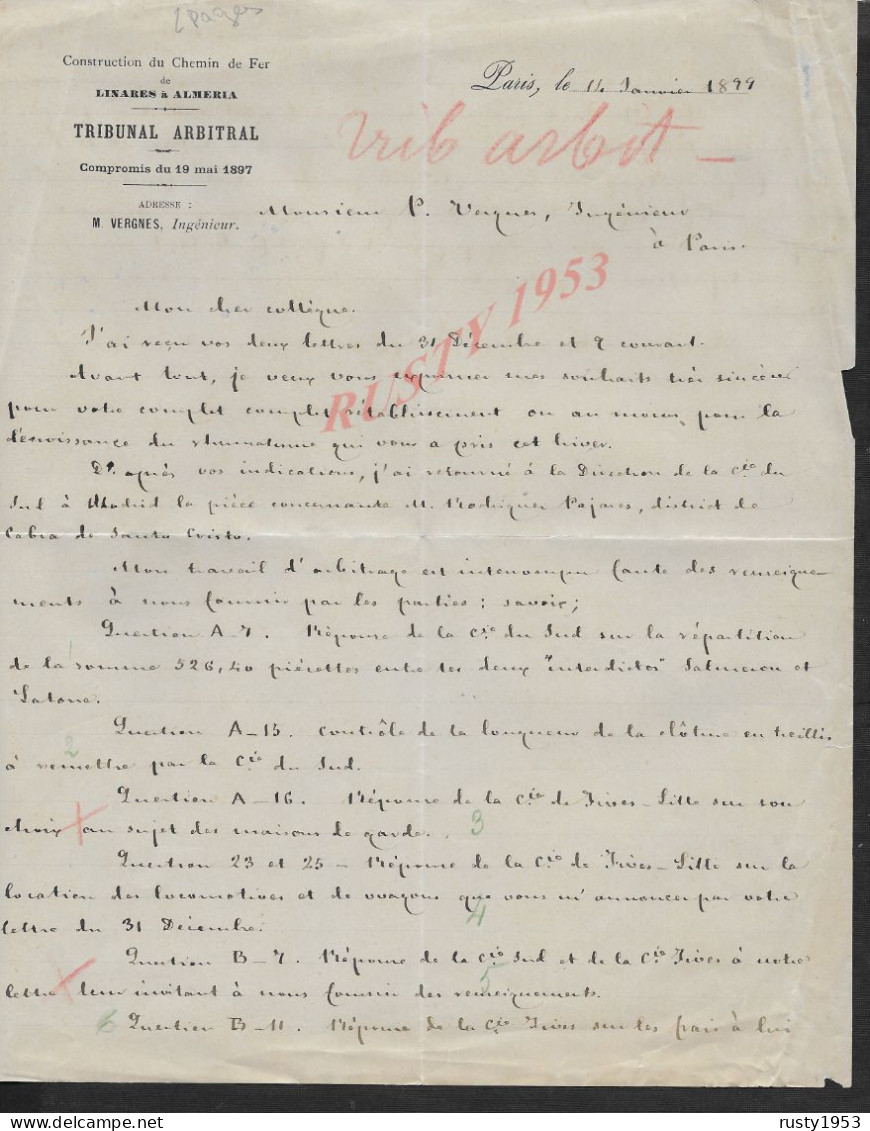 2 pages
Construction du Chemin de Fer
de
LINARES à ALMERIA
TRIBUNAL ARBITRAL
Compromis du 19 mai 1897
ADRESSE :
M. VERGNES, Ingénieur.
Paris, le 14 Janvier 1899
Trib arbit —
Monsieur P. Vergnes, Ingénieur
à Paris.
Mon cher collègue.
J'ai reçu vos deux lettres du 31 Décembre et 9 courant.
Avant tout, je veux vous exprimer mes souhaits très sincères
pour votre complet complet rétablissement ou au moins, pour la
décroissance du rhumatisme qui vous a pris cet hiver.
D'. après vos indications, j'ai retourné à la Direction de la Cie du
Sud à Madrid la pièce concernante M. Rodriguez Pajares, district de
Cabra de Santo Cristo.
Mon travail d'arbitrage est interrompu faute des renseigne
ments à nous fournir par les parties : savoir;
Question A-7. Réponse de la Cie du Sud sur la répartition
de la somme 526,40 piécettes entre les deux "interdictos" Salmeron et
Latorre.
Question A-15. Contrôle de la longueur de la clôture en treillis
2
à remettre par la Cie du Sud.
Question A-16. Réponse de la Cie de Fives-Lille sur son
choix au sujet des maisons de garde. 3
Question 23 et 25 - Réponse de la Cie de Fives-Lille sur la
location des locomotives et de wagons que vous m'annoncez par votre
4
lettre du 31 Décembre.
Question B-7. Réponse de la Cie Sud et de la Cie Fives à notre
5
lettre leur invitant à nous fournir des renseignements.
6 Question B-11. Réponse de la Cie Fives sur les frais à lui
RUSTY 1953
delcampe.net
rusty1953